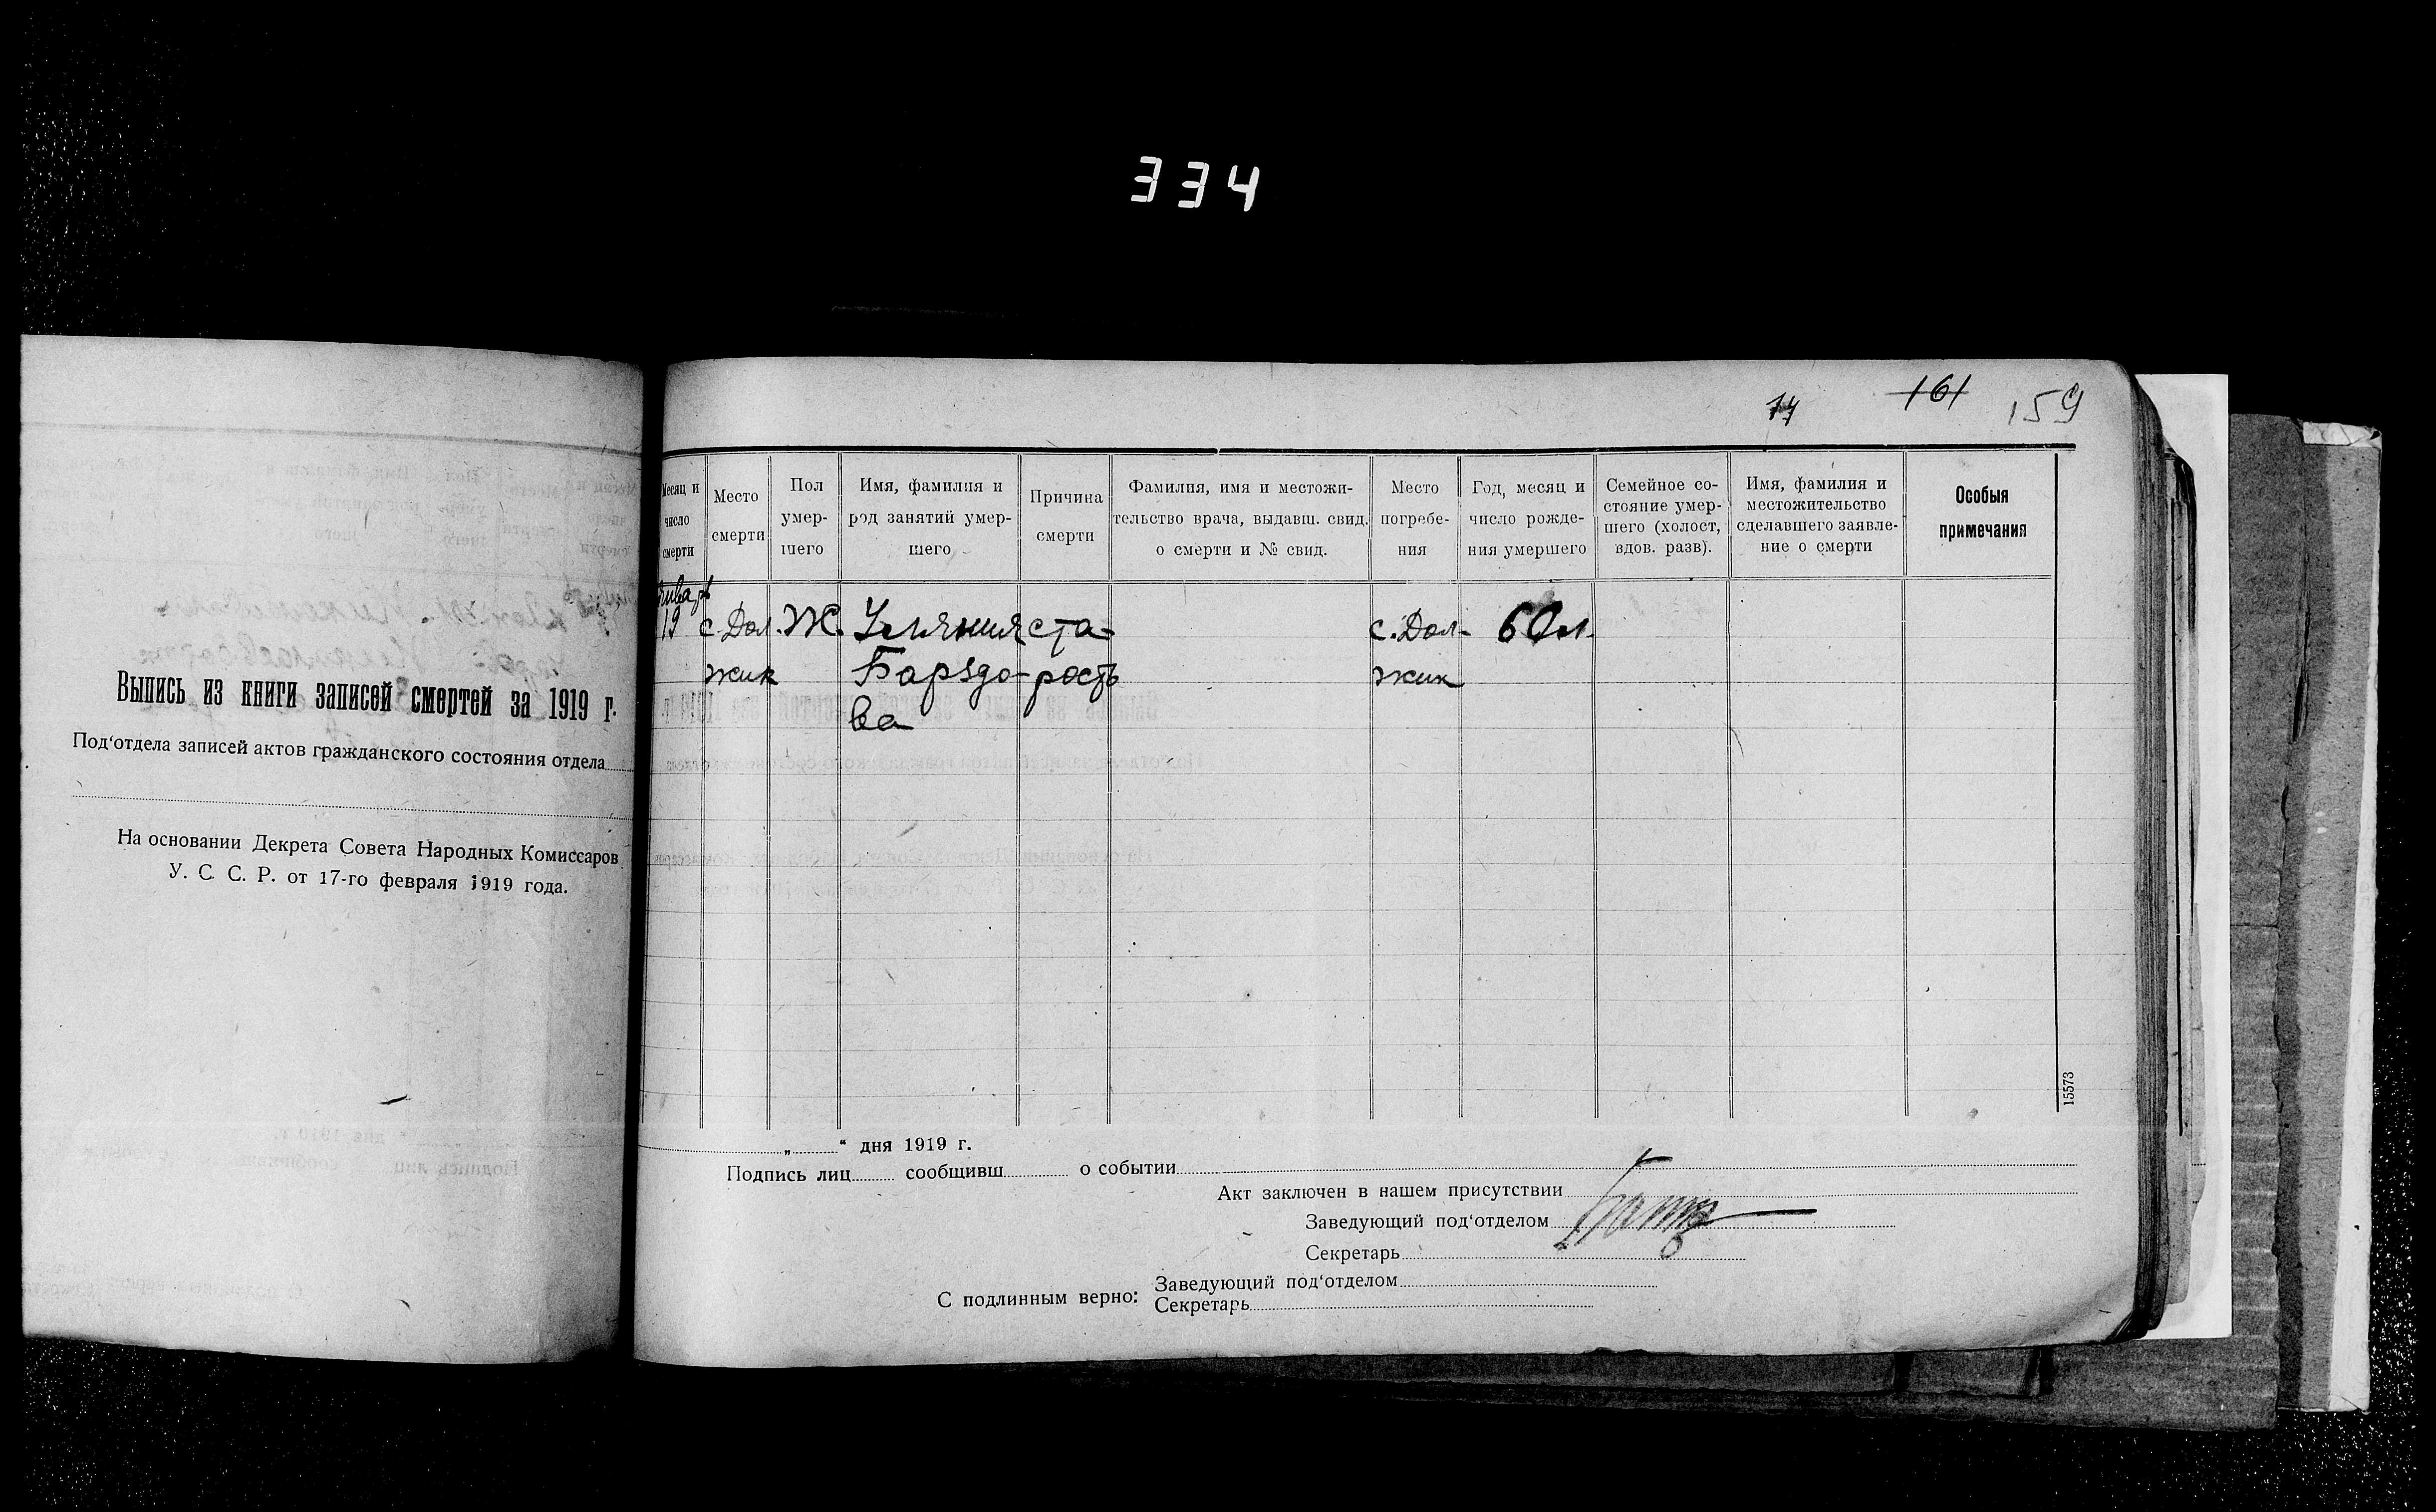 334
Выпись из книги записей смертей за 1919 г.
Под‘отдела записей актов гражданского состояния отдела
На основании Декрета Совета Народных Комиссаров
У. С. С. Р. от 17-го февраля 1919 года.
161 159
Месяц и число смерти
Место смерти
Пол умер-шего
Имя, фамилия и род занятий умер-шего
Причина смерти
Фамилия, имя и местожи-тельство врача, выдавш. свид. о смерти и № свид.
Место погребе-ния
Год, месяц и число рожде-ния умершего
Семейное со-стояние умер-шего (холост, вдов. разв).
Имя, фамилия и местожительство сделавшего заявле-ние о смерти
Особыя примечания
19 с. Дол. Ж. Улияния ста- с. Дол- 60 л.
жик Барздо- рость жик
ва
15573
„ “ дня 1919 г.
Подпись лиц сообщивш о событии
Акт заключен в нашем присутствии
Заведующий под‘отделом
Секретарь
С подлинным верно: Заведующий под‘отделом
Секретарь